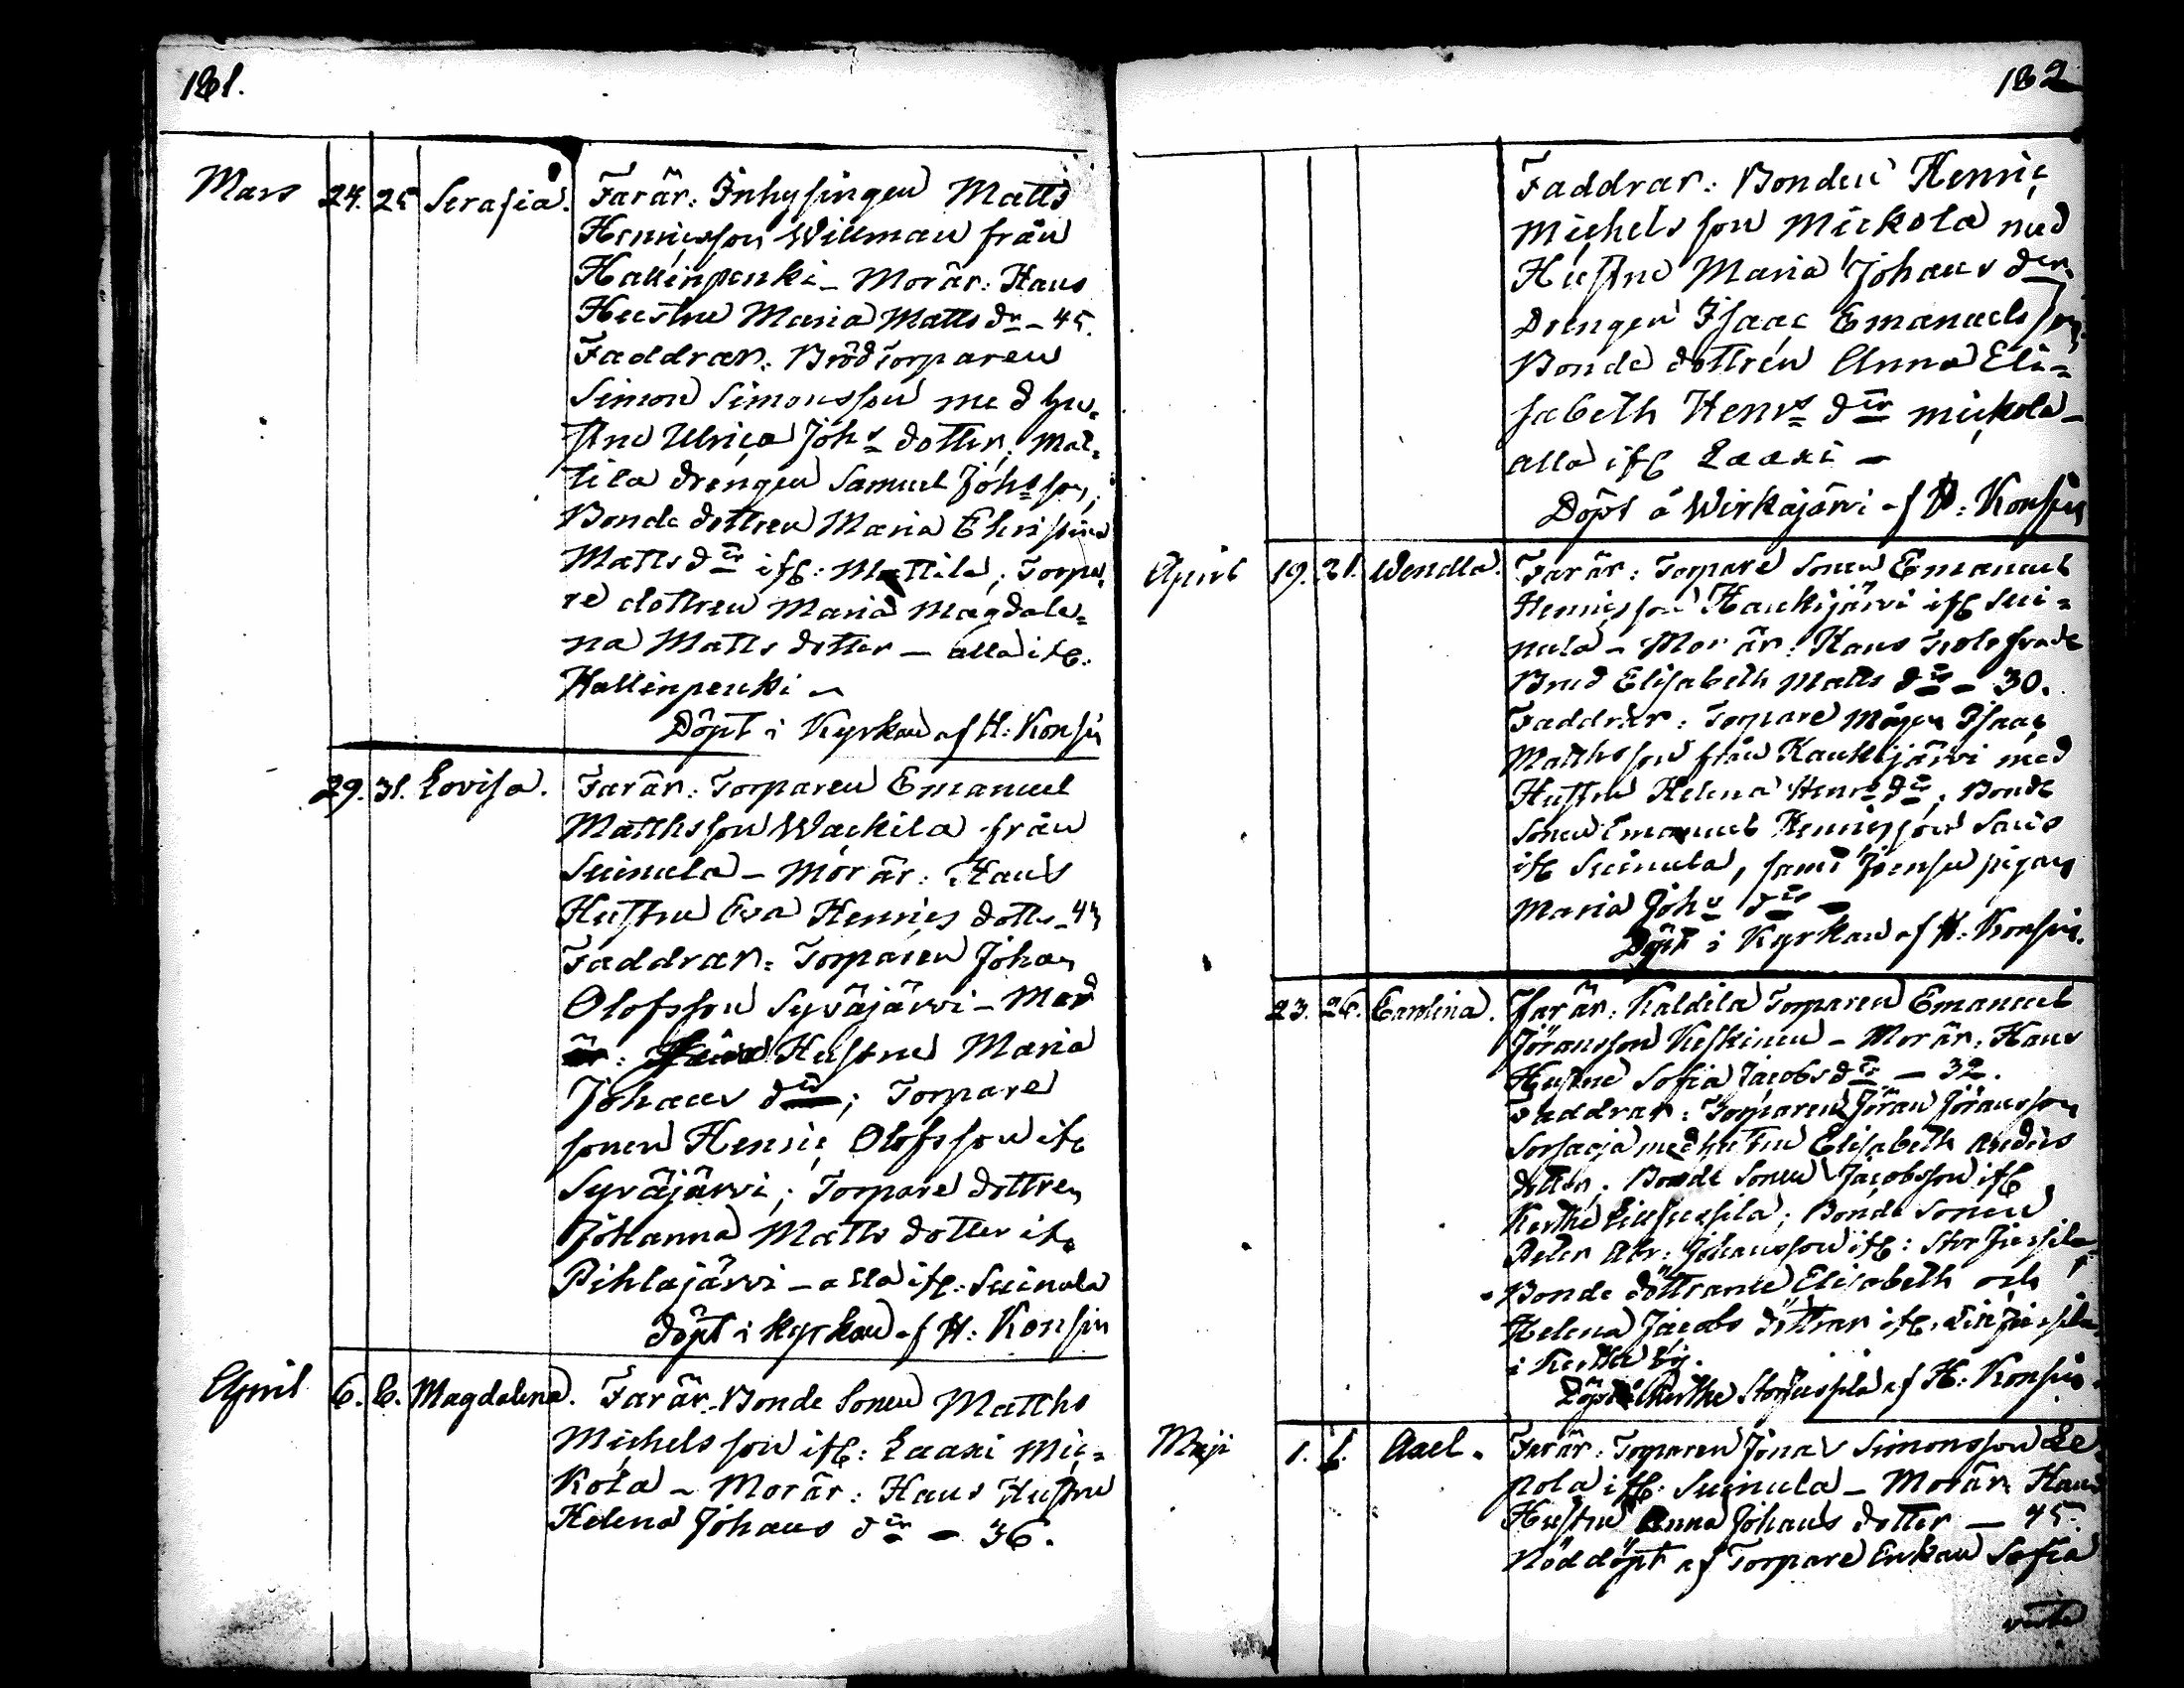 181.
Mars 24. 25 Serafia. Far är: Inhysingen Matts
Henricsson Willman från
Hallinpenki – Mor är: Hans
Hustru Maria Matts dr – 45.
Faddrar: Bröd Torparen
Simon Simonsson med hu=
stru Ulrica Johs dotter; Mat=
tila drengen Samuel Johsson;
Bonde dottren Maria Christina
Matts dtr ifr: Mattila; Torpa
re dottren Maria Magdale=
na Matts dotter – alla ifr:
Hallinpenki –
Döpt i Kyrkan af H: Konsin
29. 31. Lovisa. Far är: Torparen Emanuel
Matthsson Wackila från
Suinula – Mor är: Hans
Hustru Eva Henrics dotter
Faddrar: Torparen Johan
Olofsson Syväjärvi – Med
Hustru Maria
Johans dtr; Torpare
sonen Henric Olofsson ifr
Syväjärvi; Torpare dottren
Johanna Matts dotter ifr
Pihlajärvi – alla ifr: Suinula
döpt i kyrkan af H: Konsin
April 6. 6. Magdalena. Far är: Bonde Sonen Matths
Michelsson ifr: Laaxi Mic=
kola – Mor är: Hans Hustru
Helena Johans dtr – 36.
182
Faddrar: Bonden Henric
Michelsson Mickola med
Hustru Maria Johans dtr.
Drengen Isaac Emanuelsson,
Bonde dottren Anna Eli=
sabeth Henrs dtr Mickola –
alla ifr Laaxi –
Döpt å Wirkajärvi af H: Konsin
April 19. 21. Wendla. Far är: Torpare Sonen Emanuel
Henricsson Haukijärvi ifr Sui=
nula – Mor är: Hans Trolofvade
Brud Elisabeth Matts dtr – 30.
Faddrar: Torpare Mågen Isaac
Matthsson från Haukijärvi med
Hustru Helena Henrs dtr; Bonde
Sonen Emanuel Henricsson
ifr Suinula, samt pigan
Maria Johs dtr –
Döpt i Kyrkan af H: Konsin.
23. 26. Carolina. Far är: Torparen Emanuel
Jöransson Keskinen – Mor är: Hans
Hustru Sofia Jacobs dtr – 32.
Faddrar: Torparen Jöran Jöransson
med hustru Elisabeth Anders
dotter; Bonde Sonen Jacobsson ifr
Kerthe; Bonde Sonen
Johansson ifr: Stor
Bonde döttrarne Elisabeth och
Helena Jacobs döttrar ifr
i Kerthe by.
Döpt i Kerthe af H: Konsin.
Maji 1. 1. Axel. Far är: Torparen Jonas Simonsson Le
pola ifr: Suinula – Mor är Hans
Hustru Anna Johans dotter – 45.
Nöddöpt af Torpare Enkan Sofia